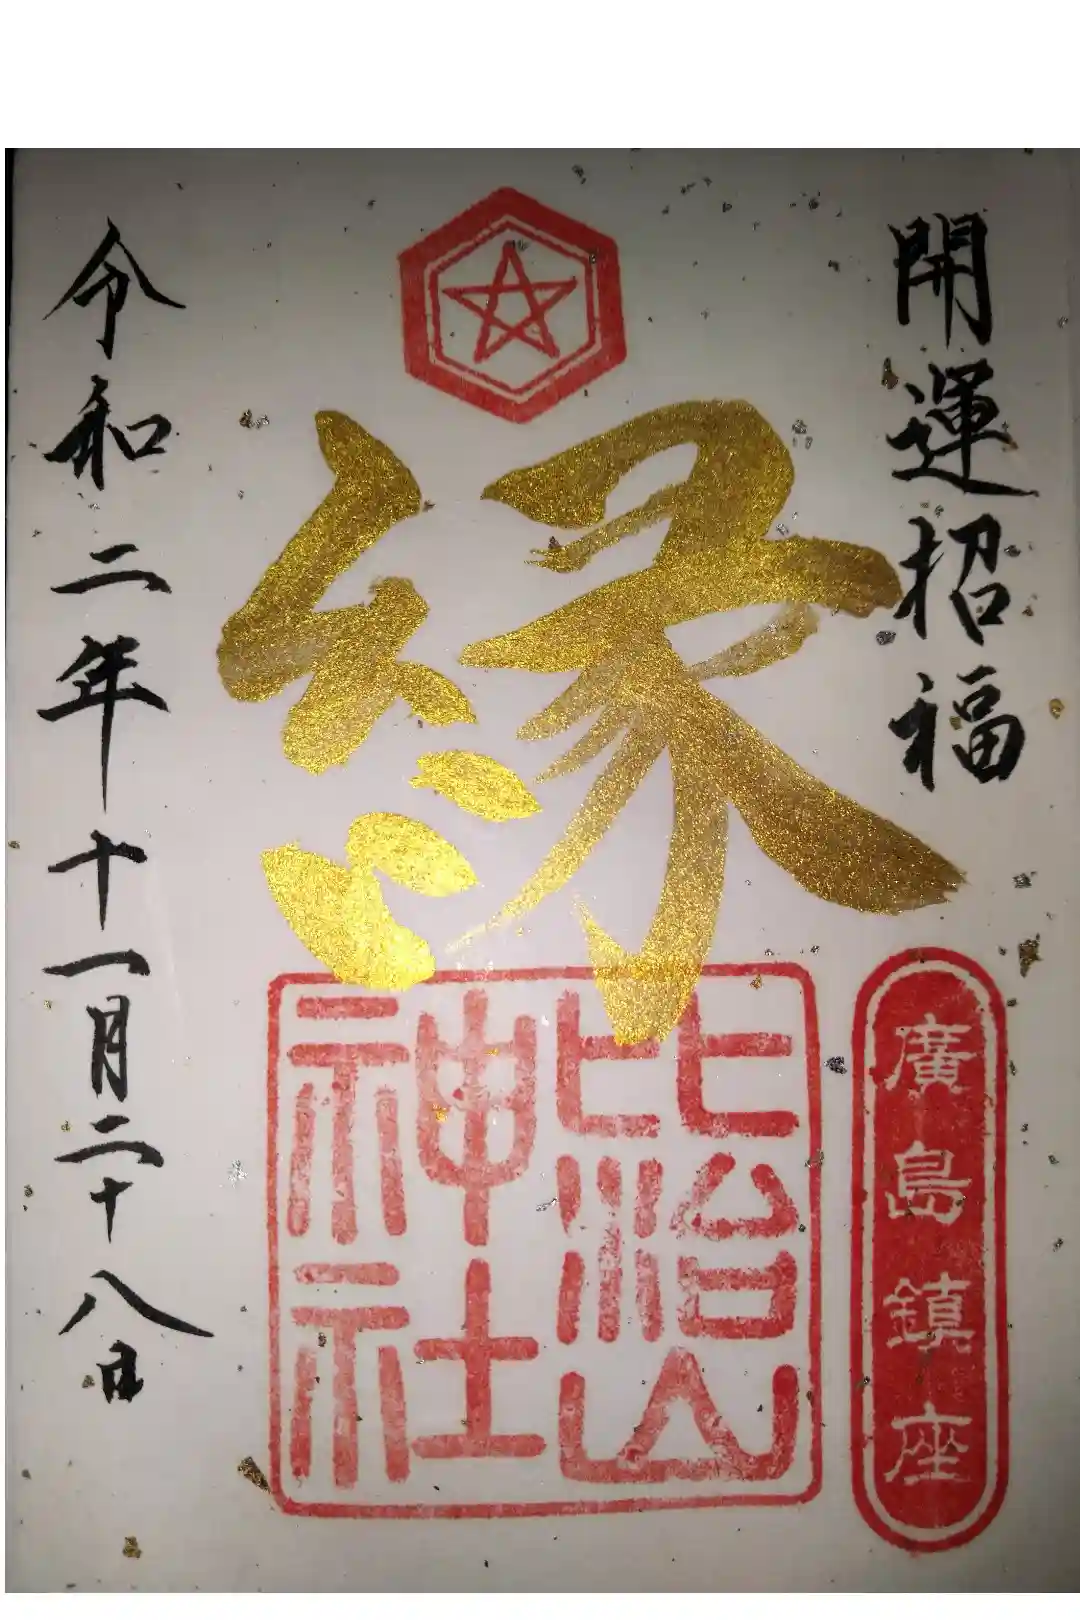 開運招福
縁
廣島鎮座
比治山
神社
令和二年十一月二十八日